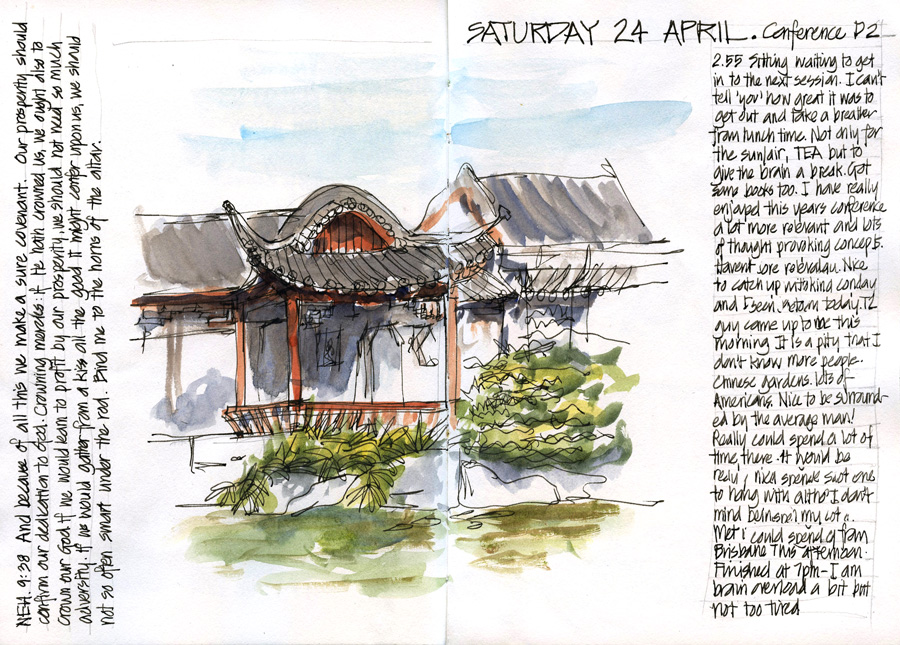 NEH. 9:38 And because of all this we make a sure covenant. Our prosperity should
confirm our dedication to God. Crowning mercies: if He hath crowned us, we ought also to
Crown our God. If we would learn to profit by our prosperity, we should not need so much
adversity. If we would gather from a kiss all the good it might confer upon us, we should
not so often smart under the rod. Bind me to the horns of the altar.
SATURDAY 24 APRIL. Conference D2
2.55 Sitting waiting to get
in to the next session. I can't
tell 'you' how great it was to
get out and take a breather
from lunch time. Not only for
the sun/air, TEA but to
give the brain a break. Got
some books too. I have really
enjoyed this years conference
a lot more relevant and lots
of thought provoking concepts.
Havent
Nice
to catch up
and
today.
guy came up to me this
morning It Is a pity that I
don't know more people.
Chinese gardens. lots of
Americans. Nice to be surround-
ed by the average man!
Really could spend a lot of
time there. It would be
really nice
one
to hang with altho' I don't
mind
my
Met
from
Brisbane This afternoon.
Finished at 7pm - I am
brain overload a bit but
not too tired